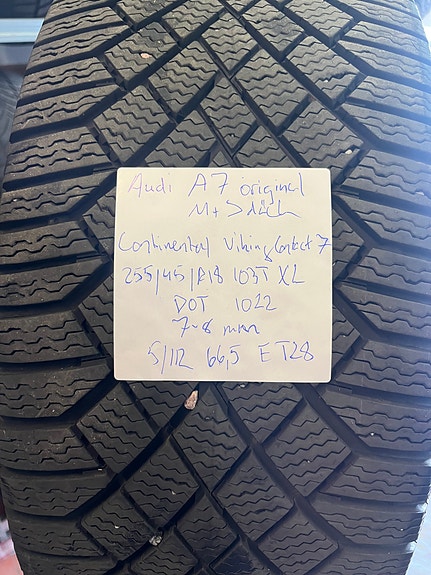 Audi A7 original
Continental Viking Contact 7
255/45/R18 103T XL
DOT 1022
7-8 mm
5/112 66,5 ET28